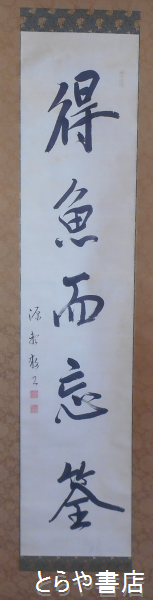 得魚而忘筌
とらや書店